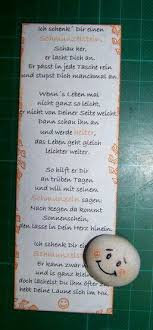 Ich schenk´ Dir einen
Schmunzelstein,
Schau her,
er lacht Dich an.
Er passt in jede Tasche rein
und stupst Dich manchmal an.
Wenn´s Leben mal
nicht ganz so leicht,
nicht von Deiner Seite weicht
Dann schau ihn an
und werde heiter,
das Leben geht gleich
leichter weiter.
So hilft er Dir
an trüben Tagen
und will mit seinem
Schmunzeln sagen:
Nach Regen da kommt
Sonnenschein,
den lasse in Dein Herz hinein.
Ich schenk Dir ei
Schmunzelste
Er kann zwar
und is ganz kle
doch lächelst Du ihn öfter
hebt Deine Laune sich im Nu.